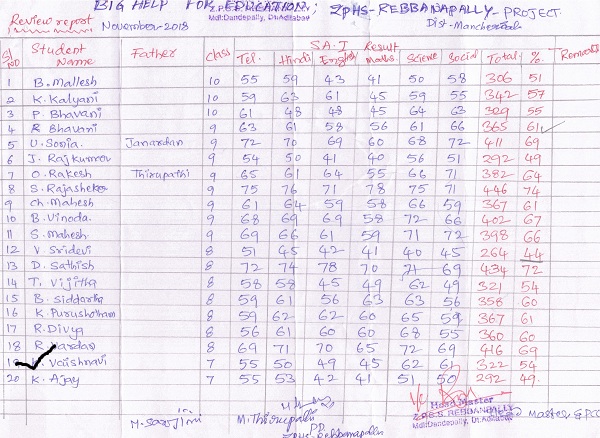 BIG HELP FOR EDUCATION; ZPHS-REBBANAPALLY-PROJECT.
Review report November-2018 Mdl:Dandepally, Dt.Adilabad Dist-Mancherial
SA-I Result
Sl NO Student Name Father Class Tel. Hindi English Maths Science Social Total % Remarks
1 B.Mallesh 10 55 59 43 41 50 58 306 51
2 K.Kalyani 10 59 63 61 45 59 55 342 57
3 P.Bhavani 10 61 48 48 45 64 63 329 55
4 R Bhavani 9 63 61 58 56 61 66 365 61
5 U.Sonia. Janardan 9 72 70 69 60 68 72 411 69
6 J. Rajkumar 9 54 50 41 40 56 51 292 49
7 O.Rakesh Thirupathi 9 65 61 64 55 66 71 382 64
8 S.Rajasheker 9 75 76 71 78 75 71 446 74
9 Ch.Mahesh 9 61 64 59 58 66 59 367 61
10 B.Vinoda. 9 68 69 69 58 72 66 402 67
11 S.Mahesh 9 69 66 61 59 71 72 398 66
12 V.Sridevi 8 51 45 42 41 40 45 264 44
13 D.Sathish 8 72 74 78 70 71 69 434 72
14 T.Vijitha 8 58 58 45 49 62 49 321 54
15 B.Siddartha 8 59 61 56 63 63 56 358 60
16 K.Purushotham 8 59 62 62 60 65 59 367 61
17 R.Divya 8 56 61 60 60 68 55 360 60
18 R. 8 69 71 70 65 72 69 416 69
19 Vaishnavi 7 55 50 49 45 62 61 322 54
20 K.Ajay 7 55 53 42 41 51 50 292 49.
M.Sarojini M.Thirupathi PD ZPHS-Rebbanapalli Head Master Z.P.H.S. REBBANAPALLY Mdl:Dandepally, Dt.Adilabad Master &